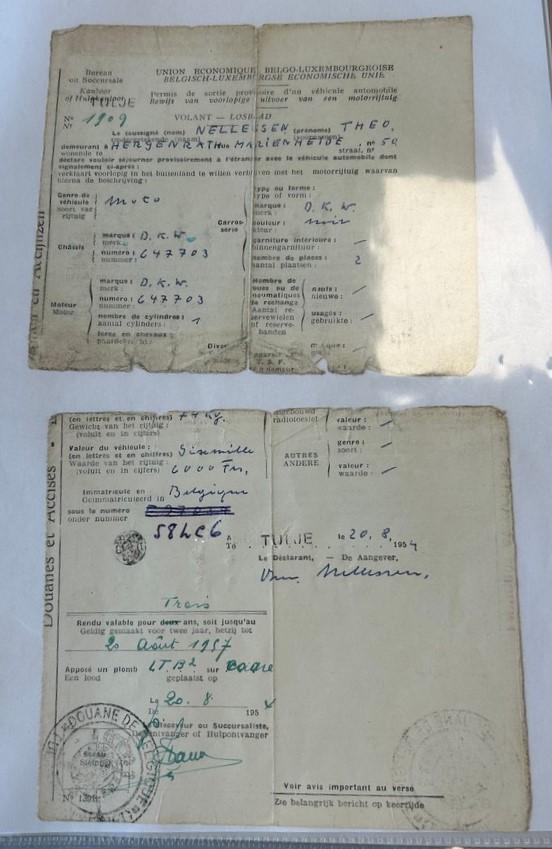 Bureau
ou Succursale
Kantoor
of Hulpkantoor
TULJE
UNION ECONOMIQUE BELGO-LUXEMBOURGEOISE
BELGISCH-LUXEMBURGSE ECONOMISCHE UNIE
Permis de sortie provisoire d'un véhicule automobile
Bewijs van voorlopige uitvoer van een motorrijtuig
VOLANT — LOSBLAD
N° 1909
Nr
Le soussigné (nom) NELLESSEN (prénoms) THEO,
demeurant à HERGENRATH MARIENHEIDE, n° 50,
wonende te straat, n°
déclare vouloir séjourner provisoirement à l'étranger avec le véhicule automobile dont
signalement ci-après :
verklaart voorlopig in het buitenland te willen verblijven met het motorrijtuig waarvan
hierna de beschrijving :
Genre du
véhicule
soort van
rijtuig
moto
Châssis
marque : D.K.W.
merk
numéro : 647703
nummer :
Moteur
Motor
marque : D.K.W.
merk :
numéro : 647703
nummer :
nombre de cylindres : 1
aantal cylinders :
Carros-
serie
type ou forme :
type of vorm :
marque : D.K.W.
merk :
couleur : noir
kleur :
garniture intérieure : —
binnengarnituur :
nombre de places : 2
aantal plaatsen :
Nombre de
roues ou de
pneumatiques
de rechange
Aantal re-
servewielen
of reserve-
banden
neufs :
nieuwe :
usagés :
gebruikte :
Douanes et Accises
(en lettres et en chiffres) 74 Kg.
Gewicht van het rijtuig :
(voluit en in cijfers)
Valeur du véhicule :
(en lettres et en chiffres) Sixmille
Waarde van het rijtuig :
(voluit en in cijfers) 6000 Frs,
Immatriculé en Belgique
Geïmmatriculeerd in
sous le numéro
onder nummer
58LC6
radiotoestel
valeur :
waarde :
AUTRES
ANDERE
genre :
soort :
valeur :
waarde :
A
Te TULJE le 20.8.1954
Le Déclarant, — De Aangever,
Trois
Rendu valable pour deux ans, soit jusqu'au
Geldig gemaakt voor twee jaar, hetzij tot
20 Août 1957
Apposé un plomb LT.B2 sur cadre
Een lood geplaatst op
Le 20.8. 1954
De
Receveur ou Succursaliste,
Ontvanger of Hulpontvanger
Voir avis important au verso
Zie belangrijk bericht op keerzijde